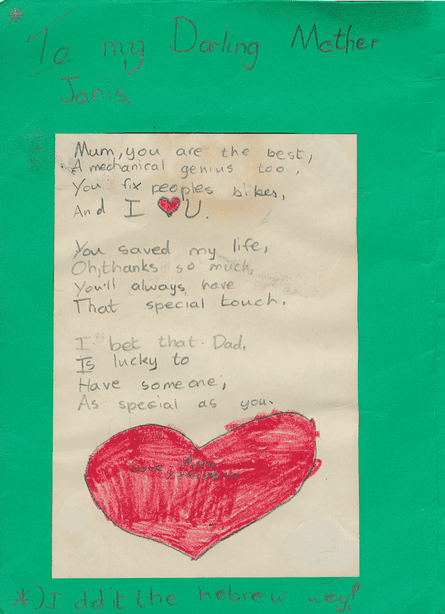 *
To my Darling Mother
Janis,
Mum, you are the best,
A mechanical genius too,
You fix peoples bikes,
And I ♥ U.
You saved my life,
Oh, thanks so much,
You'll always have
That special touch.
I bet that Dad,
Is lucky to
Have someone,
As special as you.
Love from
*) I did it the hebrew way!